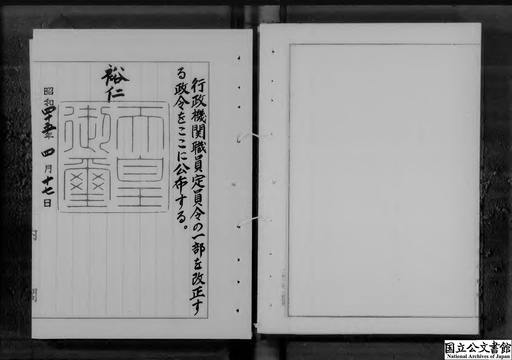 行政機関職員定員令の一部を改正す
る政令をここに公布する。
裕仁
天皇
御璽
昭和四十五年四月十七日
内閣
国立公文書館
National Archives of Japan